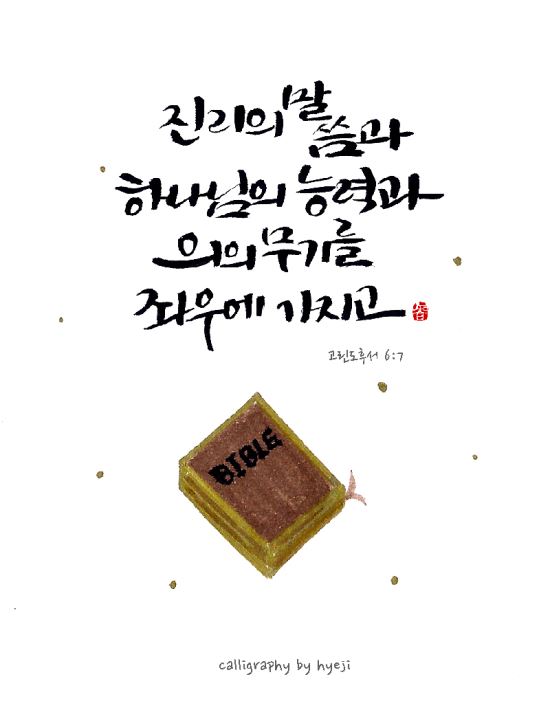 진리의 말씀과
하나님의 능력과
의의 무기를
좌우에 가지고
고린도후서 6:7
BIBLE
calligraphy by hyeji